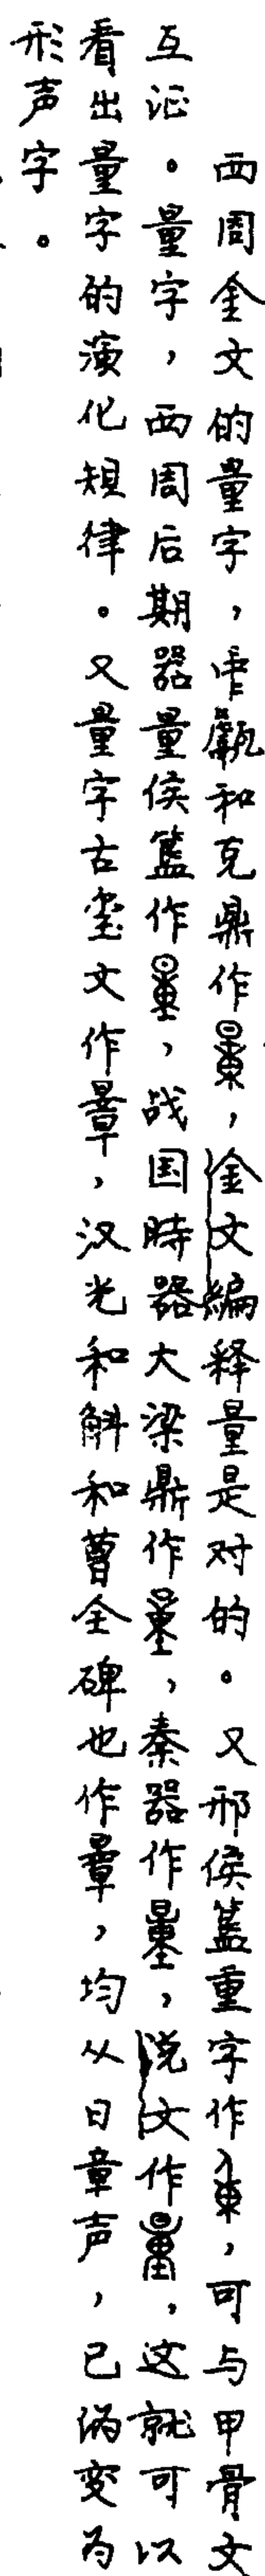 西周金文的量字，甗和克鼎作，金文編释量是对的。又邢侯簋重字作，可与甲骨文
互证。量字，西周后期器量侯簋作，战国時器大梁鼎作，秦器作，说文作，这就可以
看出量字的演化規律。又量字古玺文作，汉光和斛和曹全碑也作，均从日章声，已伪变为
形声字。